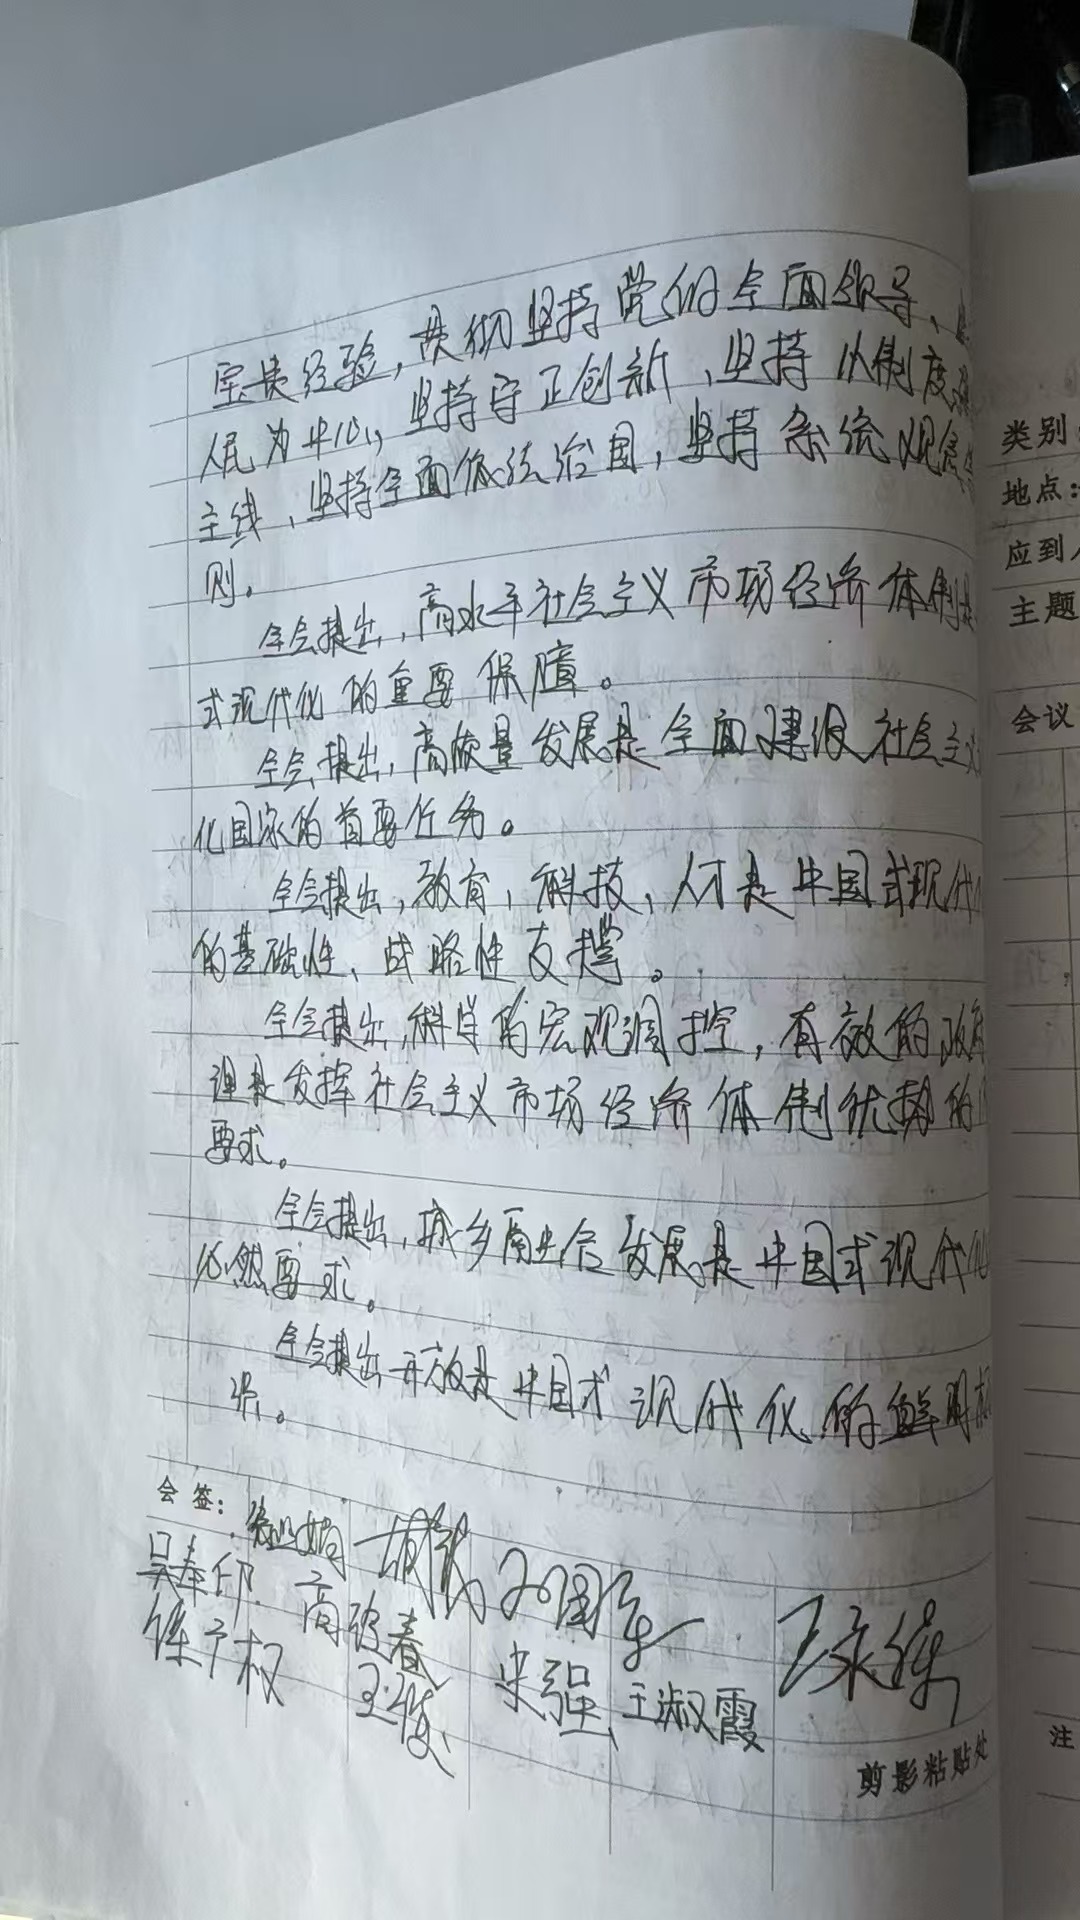 宝贵经验，贯彻坚持党的全面领导、
人民为中心，坚持守正创新、坚持以制度
主线、坚持全面依法治国，坚持系统观念
则。
全会提出，高水平社会主义市场经济体制是
式现代化的重要保障。
全会提出，高质量发展是全面建设社会主义
化国家的首要任务。
全会提出，教育、科技、人才是中国式现代
的基础性、战略性支撑。
全会提出，科学的宏观调控，有效的政府
理是发挥社会主义市场经济体制优势的
要求。
全会提出，城乡融合发展是中国式现代化
必然要求。
全会提出开放是中国式现代化的鲜明标
识。
会签：
吴奉印 高 春
权 王俊 宋强 王淑霞
剪影粘贴处
类别
地点：
应到
主题
会议
注